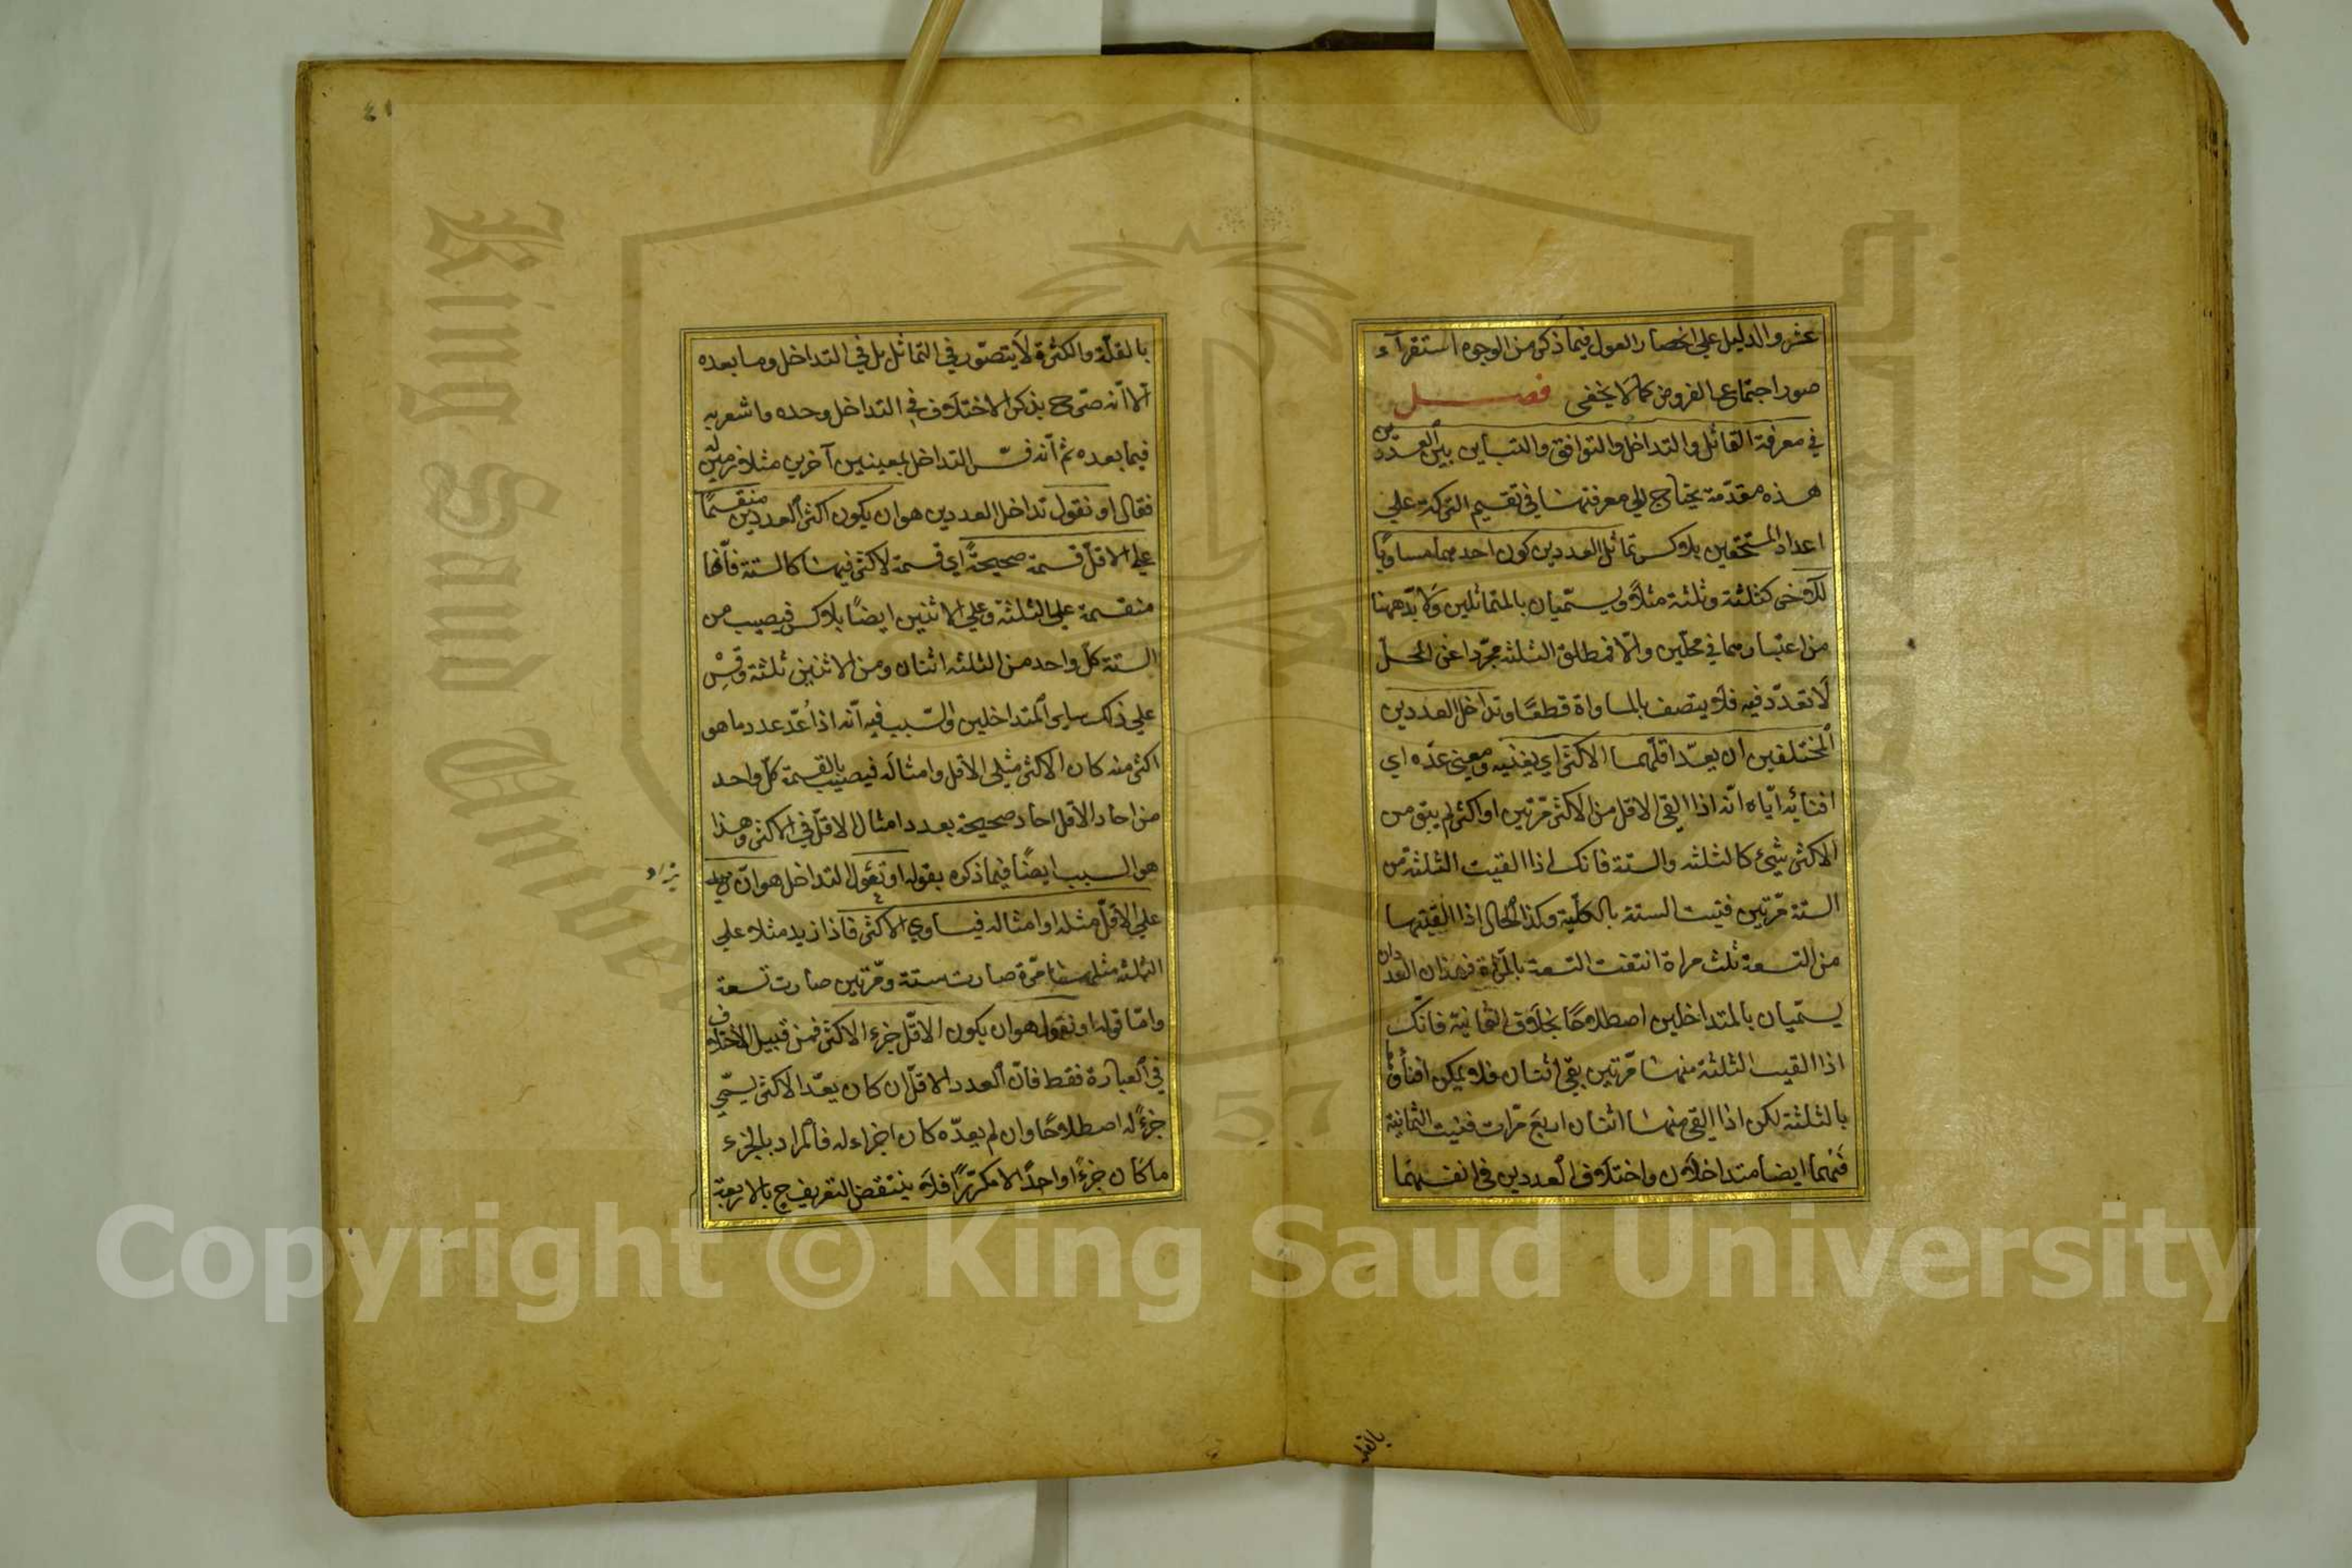 عشر والدليل على انحصار العول فيما ذكر من الوجوه استقرآء
صور اجتماع الفروض كما لا يخفى فصل
في معرفة التماثل والتداخل والتوافق والتباين بين العددين
هذه مقدّمة يحتاج الى معرفتها في تقسيم التركة على
اعداد المستحقين بلا كسر تماثل العددين كون احدهما مساويًا
للآخر كثلثة وثلثة مثلاً ويسمّيان بالمتماثلين ولا بدّ ههنا
من اعتبارهما في محلّين والّا فمطلق الثلثة مجرّدا عن المحلّ
لا تعدّد فيه فلا يتصف بالمساواة قطعًا وتداخل العددين
المختلفين ان يعدّ اقلّهما الاكثر اي يفنيه ومعنى عدّه اي
افنائه ايّاه انّه اذا القي الاقل من الاكثر مرّتين او اكثر لم يبق من
الاكثر شيئ كالثلثة والستة فانك اذا القيت الثلثة من
الستة مرّتين فنيت الستة بالكلّية وكذا الحال اذا القيتها
من التسعة ثلث مراة انتفت التسعة بالمرّة فهذان العددان
يسمّيان بالمتداخلين اصطلاحًا بخلاف الثمانية فانّك
اذا القيت الثلثة منها مرّتين بقي اثنان فلا يمكن افناؤها
بالثلثة لكن اذا القي منها اثنان اربع مرّات فنيت الثمانية
فهما ايضا متداخلان واختلاف العددين في انفسهما
بالقلة
٤١
بالقلّة والكثرة لا يتصوّر في التماثل بل في التداخل وما بعده
الاانّه صرّح بذكر الاختلاف في التداخل وحده واشعر به
فيما بعده ثم انّه فسّر التداخل بمعنيين آخرين متلازمين له
فقال او نقول تداخل العددين هو ان يكون اكثر العددين منقسمًا
على الاقلّ قسمة صحيحةً اي قسمة لا كسر فيها كالستة فانّها
منقسمة على الثلثة وعلى الاثنين ايضًا بلا كسر فيصيب من
الستة كلّ واحد من الثلثه اثنان ومن الاثنين ثلثة وقِسْ
على ذلك ساير المتداخلين والسّبب فيه انّه اذا عُدّ عدد ما هو
اكثر منه كان الاكثر مثلي الاقل او امثاله فيصيب بالقسمة كلّ واحد
من احاد الاقل احاد صحيحة بعدد امثال الاقلّ في الاكثر وهذا
هو السبب ايضًا فيما ذكره بقوله او نقول التداخل هو ان يزيد
يزاد
على الاقلّ مثله او امثاله فيساوي الاكثر فاذا زيد مثلا على
الثلثه مثلها مرّة صارت ستة ومرّتين صارت تسعة
وامّا قوله او نقول هو ان يكون الاقلّ جزء الاكثر فمن قبيل الاختلاف
في العبارة فقط فانّ العدد الاقلّ ان كان يعدّ الاكثر يسمّى
جزءً له اصطلاحًا وان لم يعدّه كان اجزاء له فالمراد بالجزء
ما كان جزءً واحدًا لا مكرّرًا فلا ينتقض التعريف ح بالاربعة
Copyright © King Saud University
King Saud University
1957